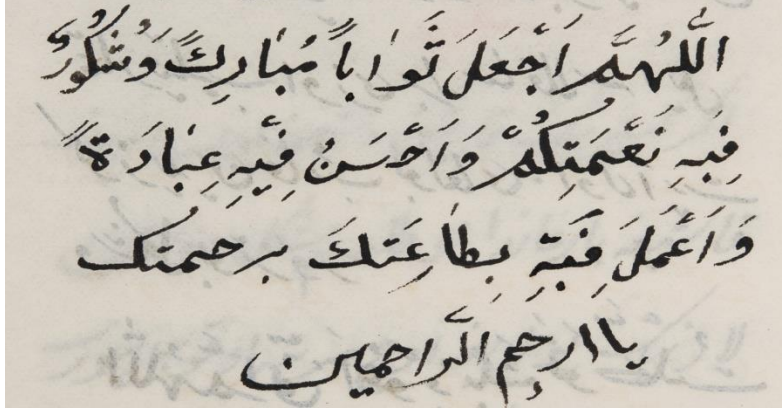 اَللّٰهُمَّ اَجْعَلَ ثَوَاباً مُبَارِكً وَشُكُورً
فِيَهِ نَعْمَتِكُمْ وَاَحْسَنُ فِيْهِ عِبَادَةً
وَاَعْمَلَ فِيَهِ بِطَاعَتِكَ برحمتك
يا ارحم الرّاحمين